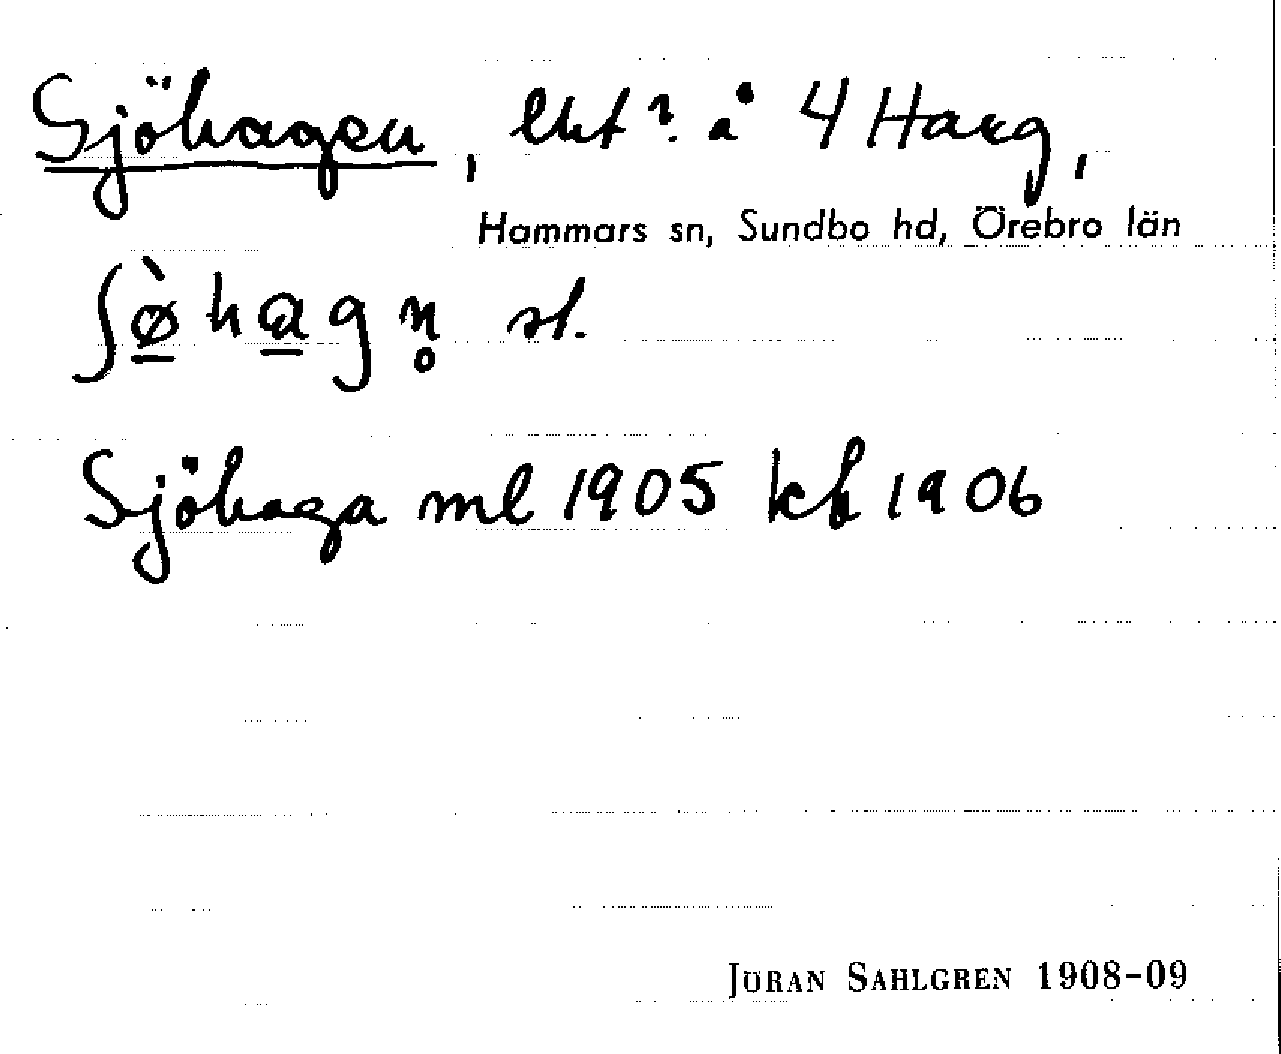 Sjöhagen, lht? å 4 Harg,
Hammars sn, Sundbo hd, Örebro län
ʃø̠̀ha̠gn̥ st.
Sjöhaga ml 1905 kb 1906
JÖRAN SAHLGREN 1908-09